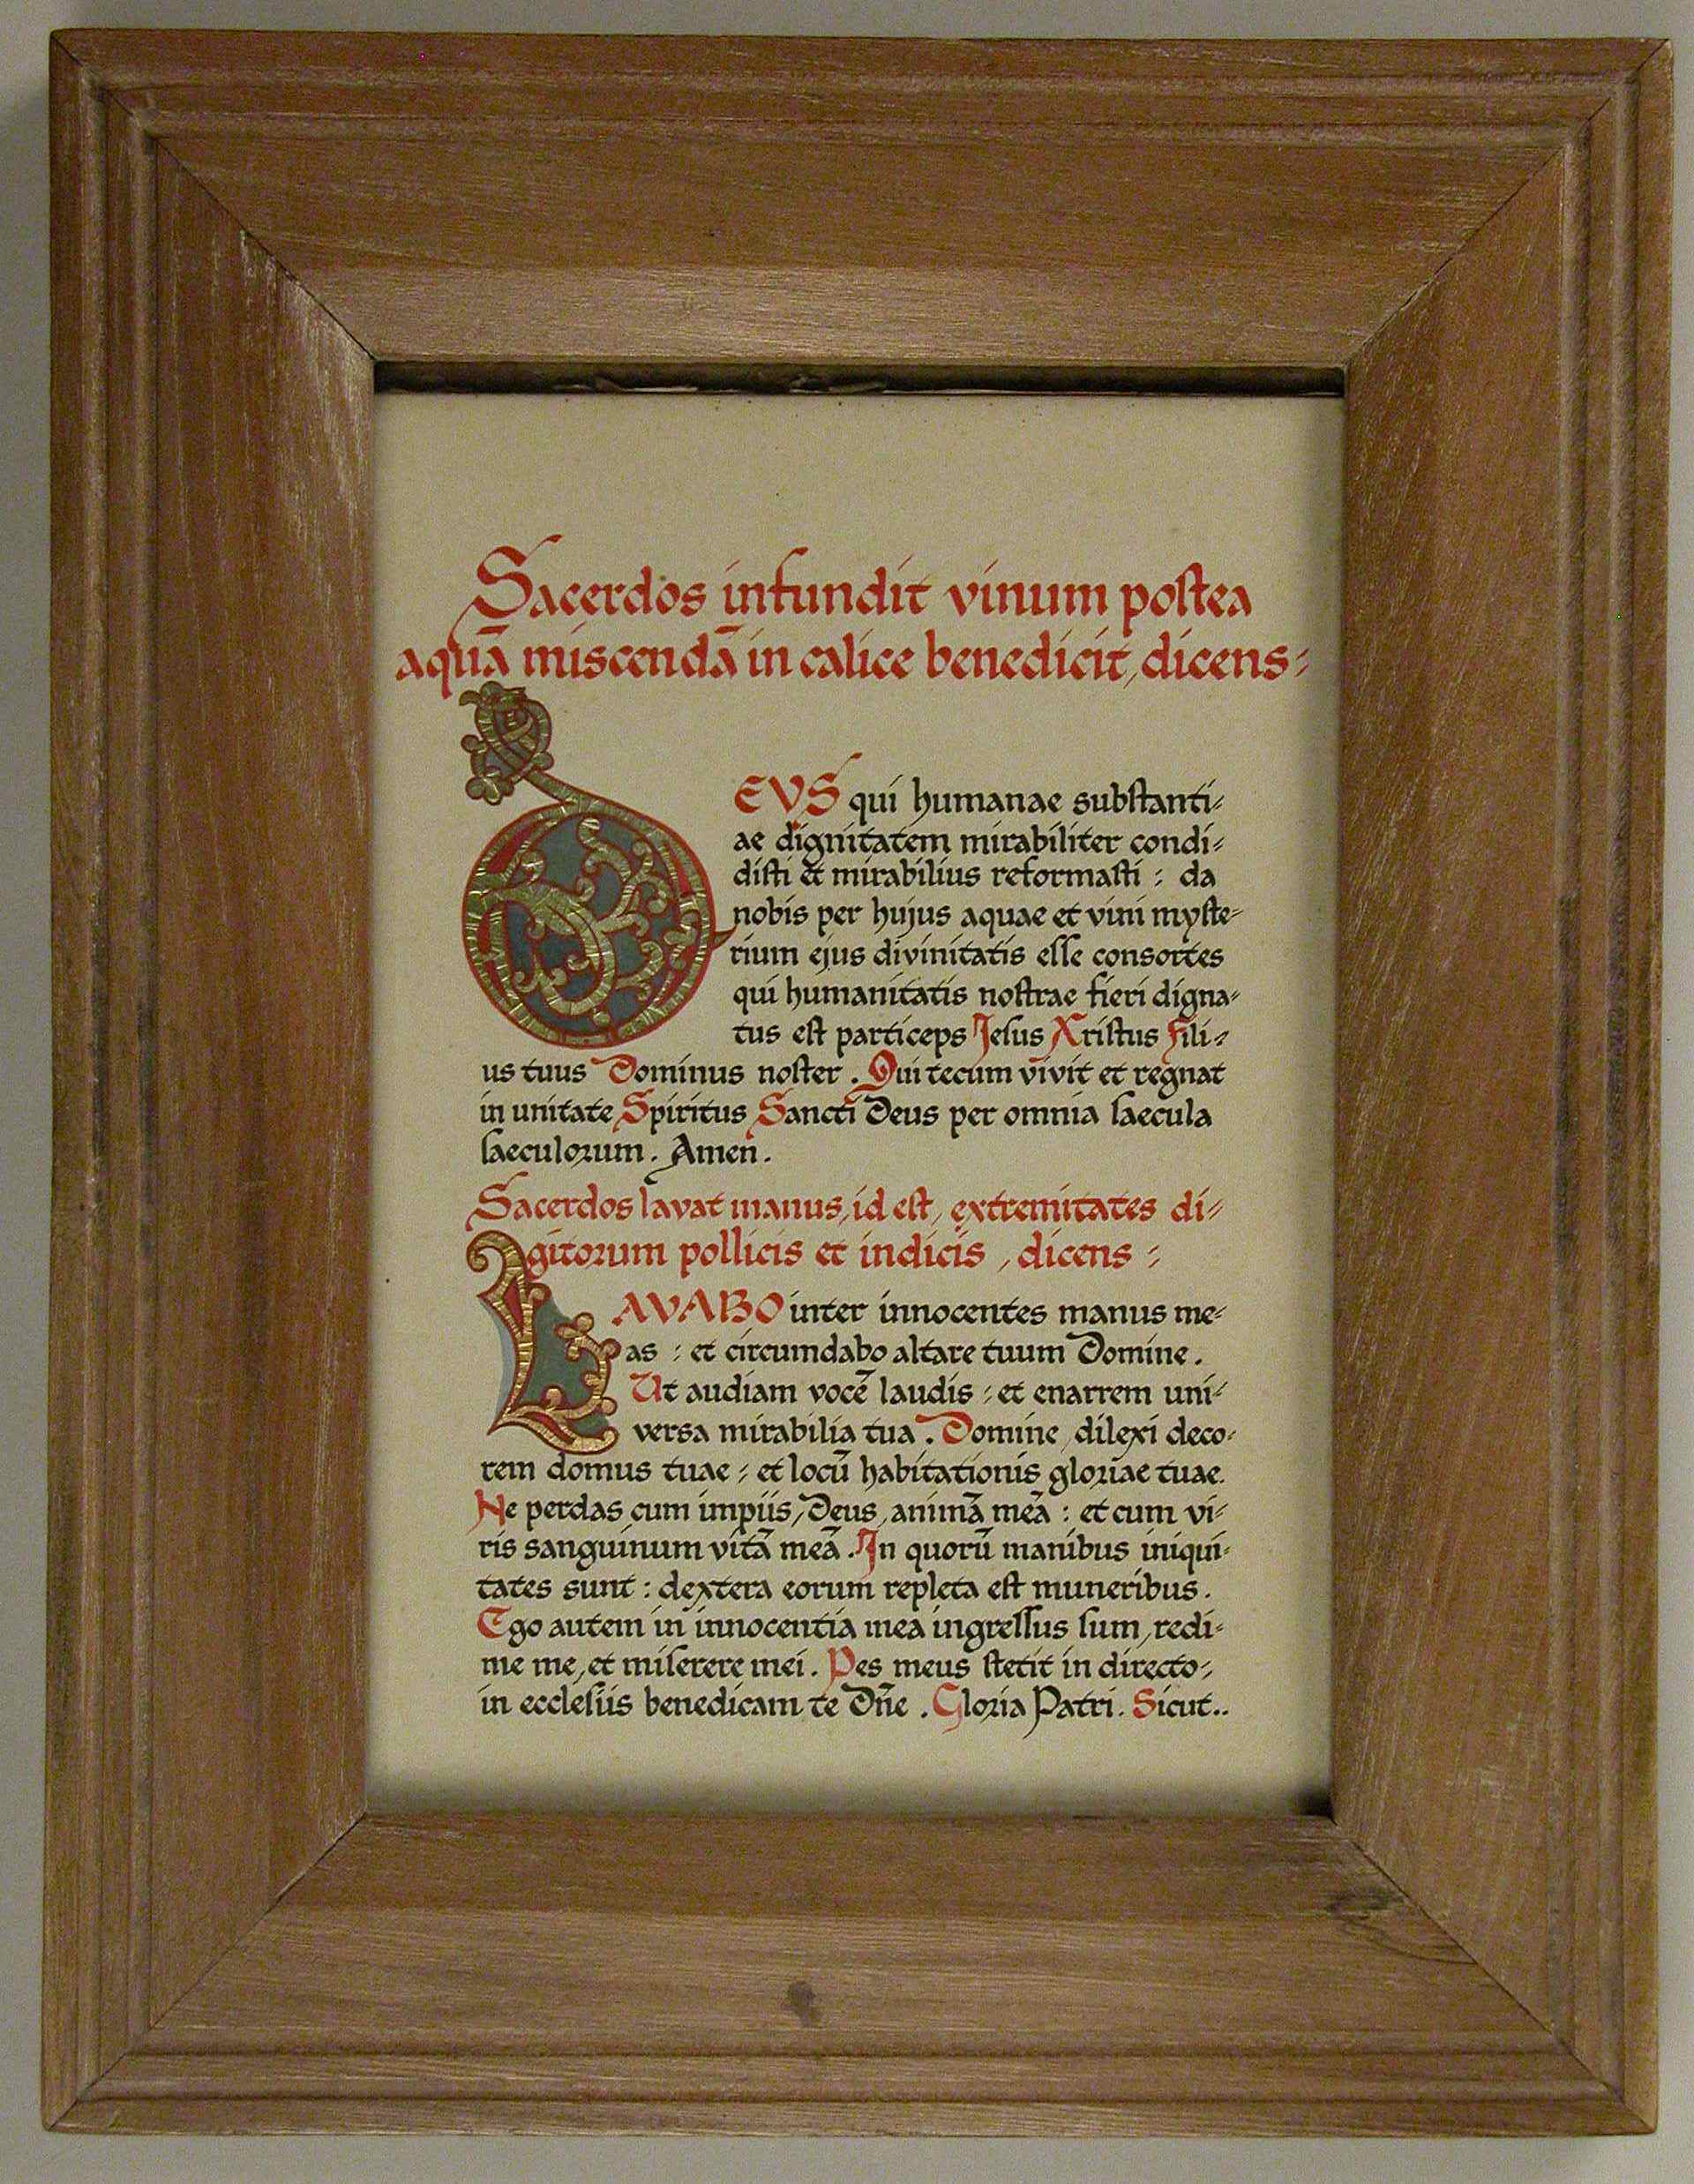 Sacerdos infundit vinum postea
aquā miscendā in calice benedicit, dicens:
DEVS qui humanae substanti-
ae dignitatem mirabiliter condi-
disti & mirabilius reformasti : da
nobis per hujus aquae et vini myste-
rium ejus divinitatis esse consortes
qui humanitatis nostrae fieri digna-
tus est particeps Jesus Xristus Fili-
us tuus Dominus noster. Qui tecum vivit et regnat
in unitate Spiritus Sancti Deus per omnia saecula
saeculorum. Amen.
Sacerdos lavat manus, id est, extremitates di-
gitorum pollicis et indicis, dicens :
LAVABO inter innocentes manus me-
as : et circumdabo altare tuum Domine.
Ut audiam vocē laudis : et enarrem uni-
versa mirabilia tua. Domine, dilexi deco-
rem domus tuae : et locū habitationis gloriae tuae.
Ne perdas cum impiis, Deus, animā meā : et cum vi-
ris sanguinum vitā meā. In quorū manibus iniqui-
tates sunt : dextera eorum repleta est muneribus.
Ego autem in innocentia mea ingressus sum, redi-
me me, et miserere mei. Pes meus stetit in directo :
in ecclesiis benedicam te Dñe. Gloria Patri. Sicut..